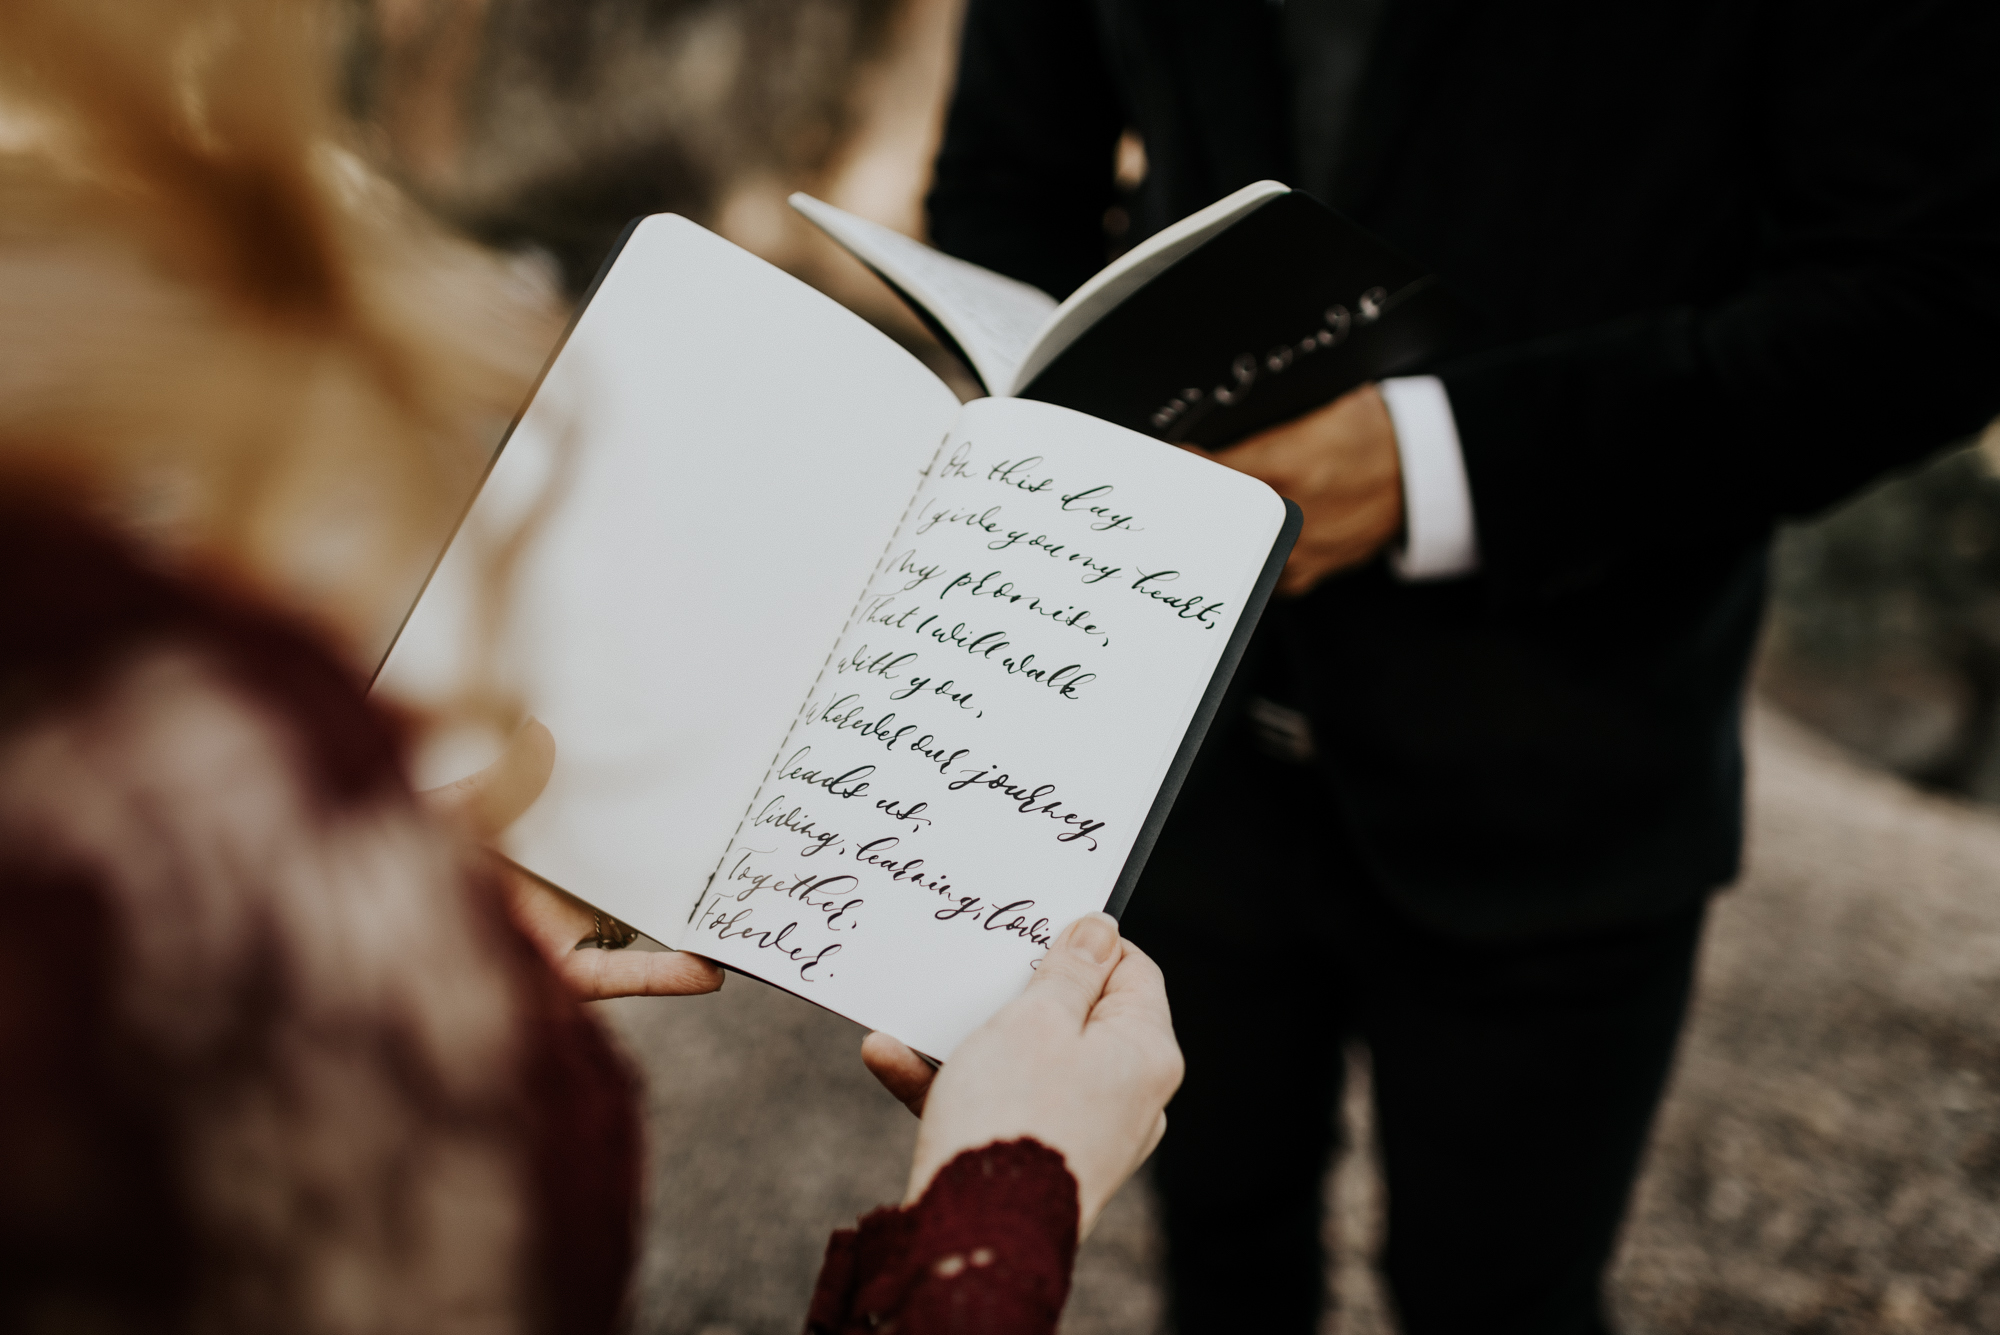 On this day,
I give you my heart,
My promise,
That I will walk
with you,
Wherever our journey
leads us,
living, learning, loving
Together,
Forever.